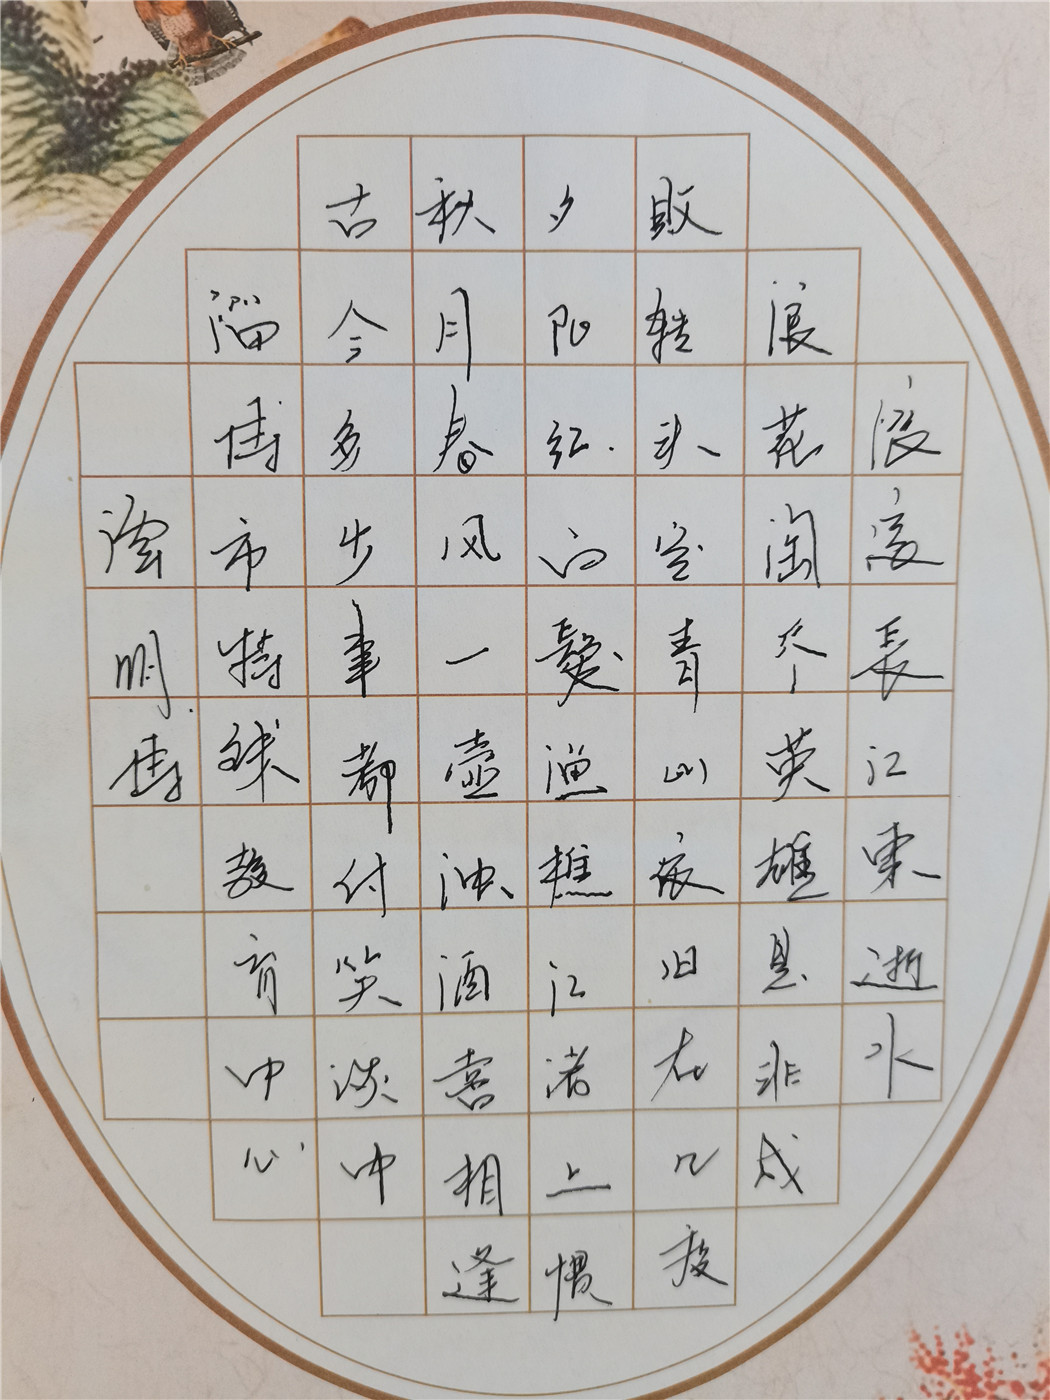 滚滚長江東逝水
浪花淘尽英雄是非成
敗转头空青山依旧在几度
夕阳红白髮渔樵江渚上惯
秋月春风一壶浊酒喜相逢
古今多少事都付笑谈中
淄博市特殊教育中心
明博